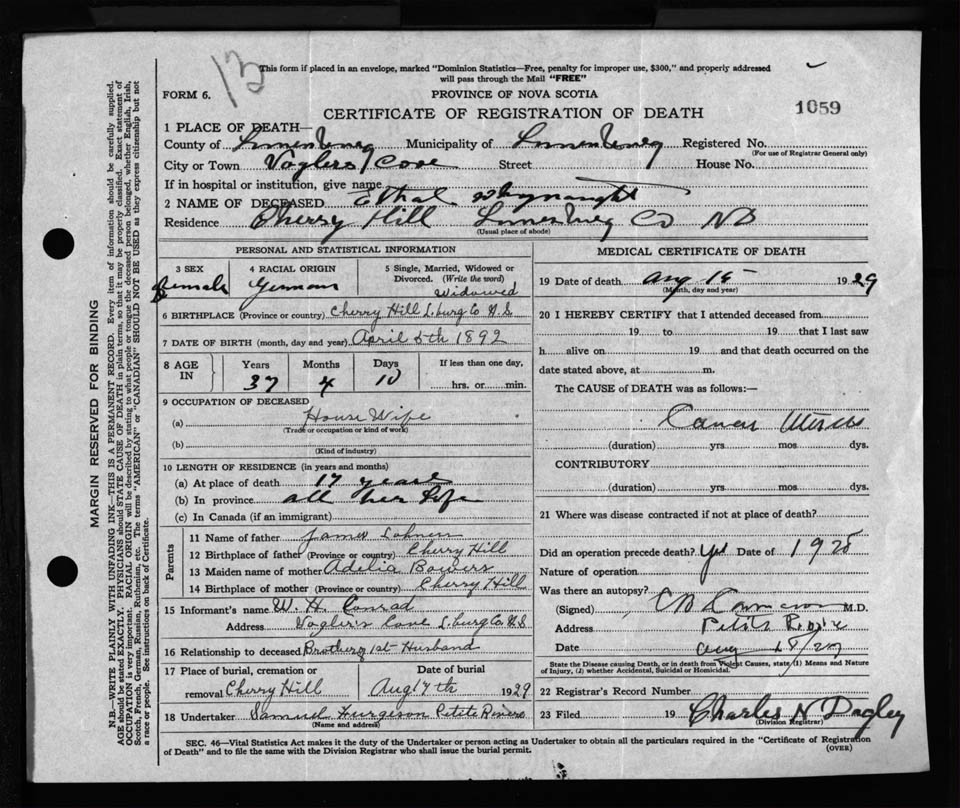 13
This form if placed in an envelope, marked "Dominion Statistics—Free, penalty for improper use, $300," and properly addressed
will pass through the Mail "FREE"
FORM 6.
PROVINCE OF NOVA SCOTIA
1059
CERTIFICATE OF REGISTRATION OF DEATH
1 PLACE OF DEATH—
County of Lunenburg Municipality of Lunenburg Registered No.
(For use of Registrar General only)
City or Town Voglers Cove Street House No.
If in hospital or institution, give name
2 NAME OF DECEASED Ethal Whynaught
Residence Cherry Hill Lunenburg Co NS
(Usual place of abode)
PERSONAL AND STATISTICAL INFORMATION
3 SEX
Female
4 RACIAL ORIGIN
German
5 Single, Married, Widowed or
Divorced. (Write the word)
Widowed
6 BIRTHPLACE (Province or country) Cherry Hill L.burg Co N.S.
7 DATE OF BIRTH (month, day and year) April 5th 1892
8 AGE IN
Years 37
Months 4
Days 10
If less than one day,
hrs. or min.
9 OCCUPATION OF DECEASED
(a) House Wife
(Trade or occupation or kind of work)
(b)
(Kind of industry)
10 LENGTH OF RESIDENCE (in years and months)
(a) At place of death 17 years
(b) In province all her life
(c) In Canada (if an immigrant)
Parents
11 Name of father James Lohness
12 Birthplace of father (Province or country) Cherry Hill
13 Maiden name of mother Adelia Bowers
14 Birthplace of mother (Province or country) Cherry Hill
15 Informant's name W. H. Conrad
Address Vogler's Cove L.burg Co N.S
16 Relationship to deceased Brother of 1st Husband
17 Place of burial, cremation or
removal Cherry Hill
Date of burial
Aug 17th 1929
18 Undertaker Samuel Furgeson Petete Riviere
(Name and address)
MEDICAL CERTIFICATE OF DEATH
19 Date of death Aug 15 1929
(Month, day and year)
20 I HEREBY CERTIFY that I attended deceased from
19 to 19 that I last saw
h alive on 19 and that death occurred on the
date stated above, at m.
The CAUSE of DEATH was as follows:—
Cancer Uterus
(duration) yrs. mos. dys.
CONTRIBUTORY
(duration) yrs. mos. dys.
21 Where was disease contracted if not at place of death?
Did an operation precede death? Yes Date of 1928
Nature of operation
Was there an autopsy?
(Signed) Cameron M.D.
Address Petite Riviere
Date Aug
State the Disease causing Death, or in death from Violent Causes, state (1) Means and Nature
of Injury, (2) whether Accidental, Suicidal or Homicidal.
22 Registrar's Record Number
23 Filed 19 Charles N Dagley
(Division Registrar)
SEC. 46—Vital Statistics Act makes it the duty of the Undertaker or person acting as Undertaker to obtain all the particulars required in the "Certificate of Registration
of Death" and to file the same with the Division Registrar who shall issue the burial permit.
(OVER)
MARGIN RESERVED FOR BINDING
N.B.—WRITE PLAINLY WITH UNFADING INK—THIS IS A PERMANENT RECORD. Every item of information should be carefully supplied.
AGE should be stated EXACTLY. PHYSICIANS should STATE CAUSE OF DEATH in plain terms, so that it may be properly classified. Exact statement of
OCCUPATION is very important. RACIAL ORIGIN will be described by stating to what people or tongue the deceased person belonged, whether English, Irish,
Scotch, French, German, Russian, Ruthenian, etc. The terms "AMERICAN" or "CANADIAN" SHOULD NOT BE USED as they express citizenship but not
a race or people. See instructions on back of Certificate.